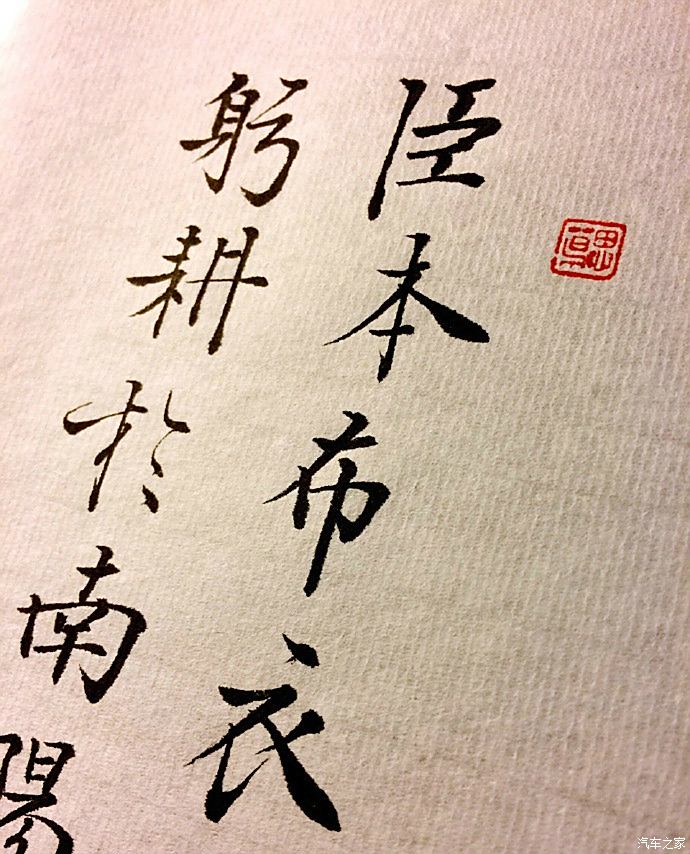 臣本布衣
躬耕於南陽
汽车之家